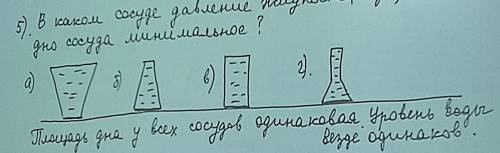 5). В каком сосуде давление
дно сосуда минимальное?
а) б) в) г).
Площадь дна у всех сосудов одинаковая. Уровень воды
везде одинаков.